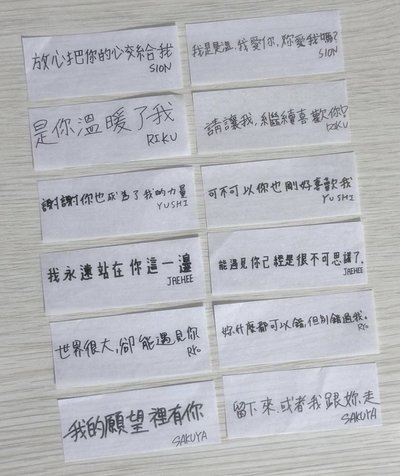 放心把你的心交給我
SION
我是是溫,我愛你,妳愛我嗎?
SION
是你溫暖了我
RIKU
請讓我,繼續喜歡你!
RIKU
謝謝你也成為了我的力量
YUSHI
可不可以你也剛好喜歡我
YUSHI
我永遠站在你這一邊
JAEHEE
能遇見你已經是很不可思議了.
JAEHEE
世界很大,卻能遇見你
RYO
妳什麼都可以錯,但別錯過我。
RYO
我的願望裡有你
SAKUYA
留下來,或者我跟妳走
SAKUYA